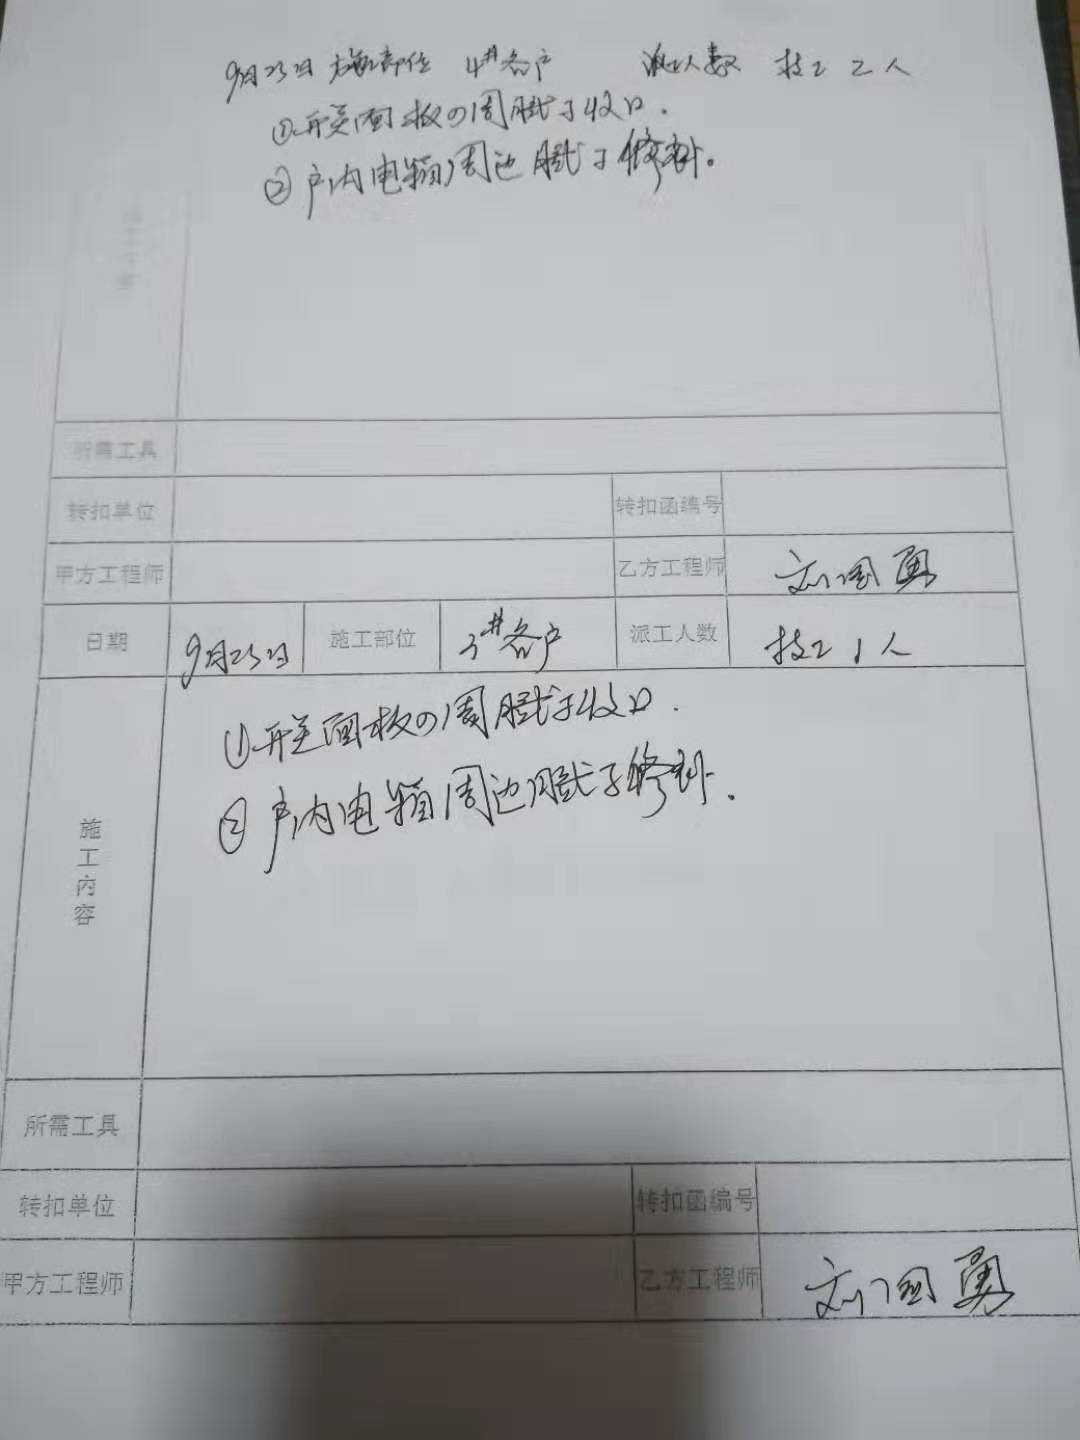 9月25日 施工部位 4#各户 派工人数 技工 2人
①开关面板四周腻子收口.
②户内电箱周边腻子修补.
所需工具
转扣单位 转扣函编号
甲方工程师 乙方工程师 刘国勇
日期 9月25日 施工部位 3#各户 派工人数 技工1人
①开关面板四周腻子收口.
②户内电箱周边腻子修补.
施工内容
所需工具
转扣单位 转扣函编号
甲方工程师 乙方工程师 刘国勇